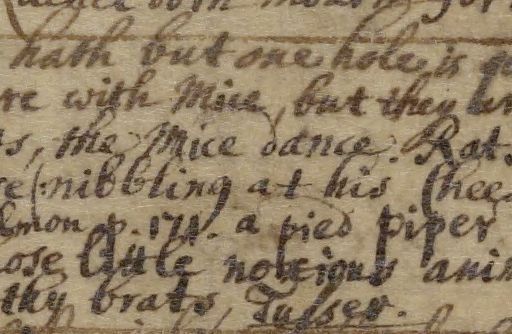 hath but one hole is
re with Mice, but they
ts, the Mice dance. Rat
se (nibbling at his Chee
lmon p. 171. a pied piper
hose little noxious anim
thy brats, Tusser.